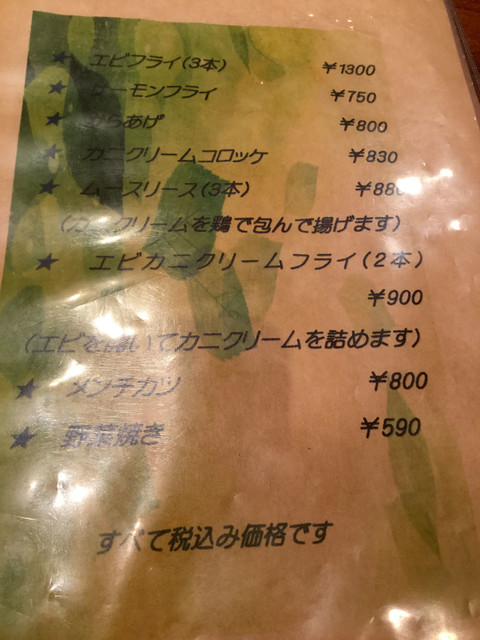 ★ エビフライ(3本) ¥1300
★ サーモンフライ ¥750
★ からあげ ¥800
★ カニクリームコロッケ ¥830
★ ムースリース(3本) ¥880
(カニクリームを鶏で包んで揚げます)
★ エビカニクリームフライ(2本)
¥900
(エビを開いてカニクリームを詰めます)
★ メンチカツ ¥800
★ 野菜焼き ¥590
すべて税込み価格です